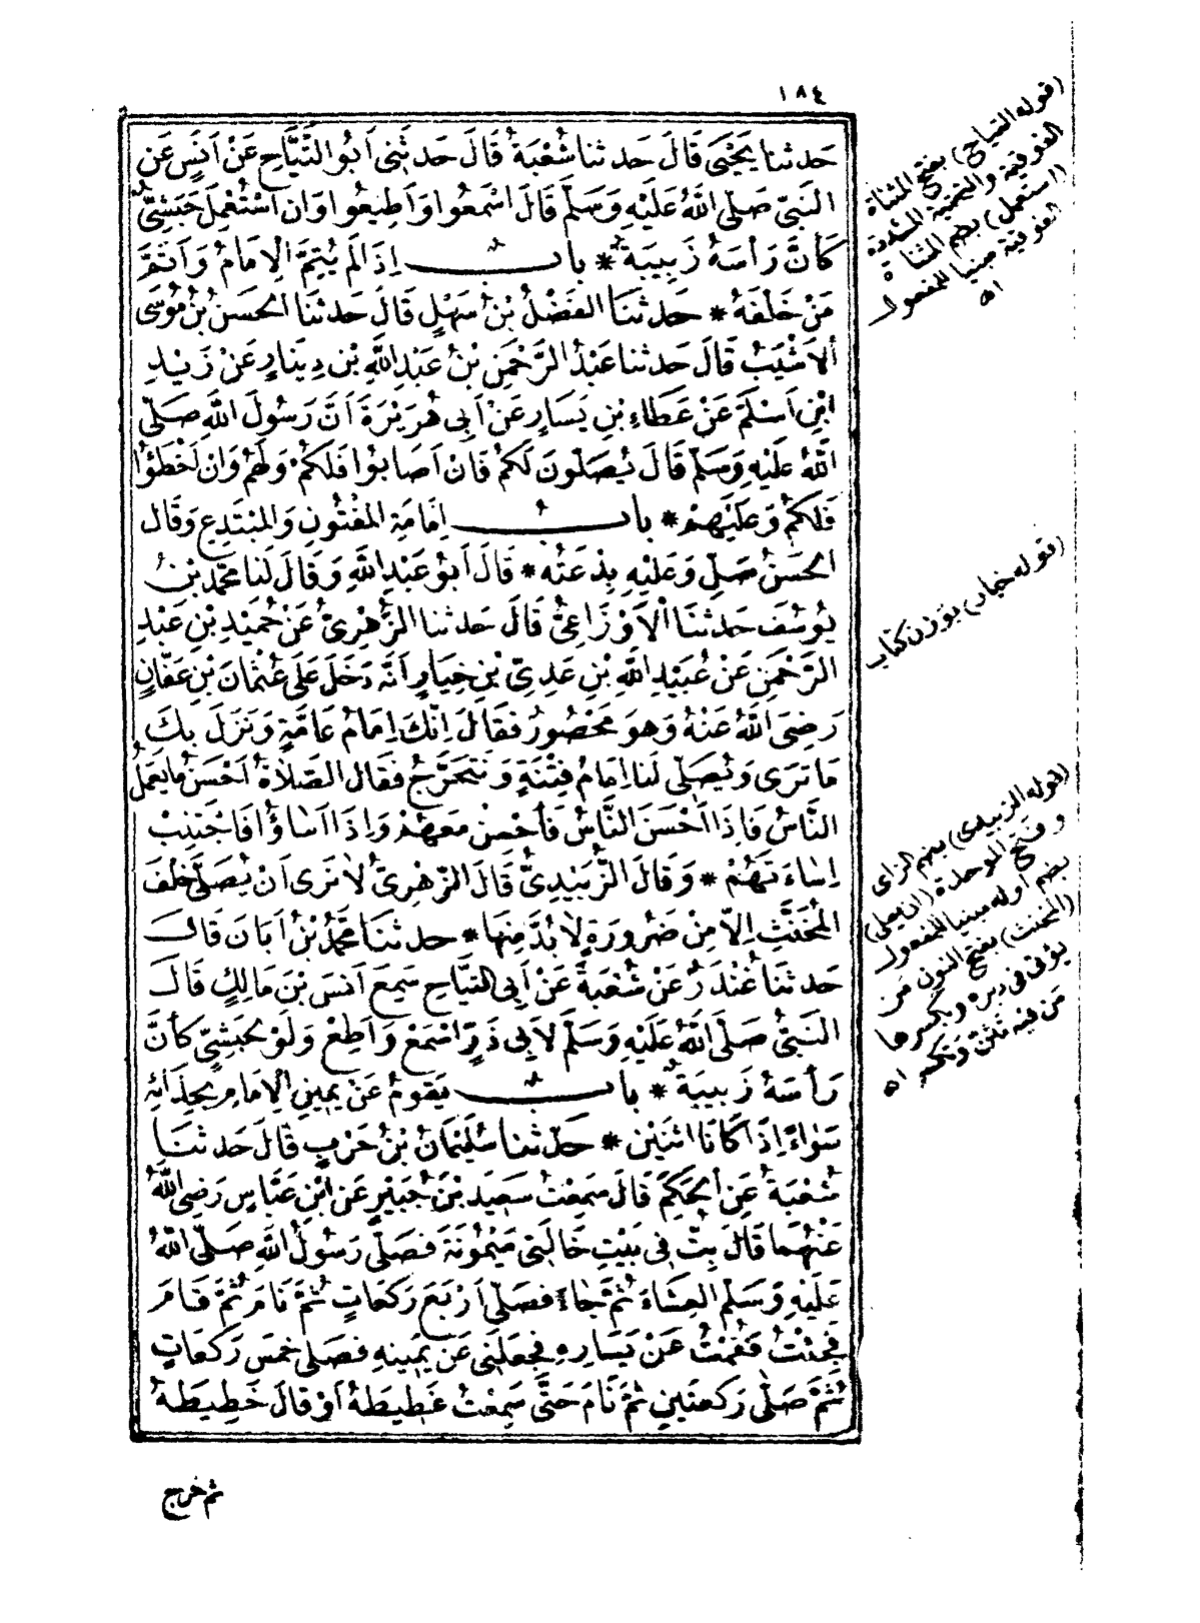 ١٨٤
حَدثنا يَحْيَى قَالَ حَدثنا شُعْبَةُ قَالَ حَدثنِى أَبُو التَّيَّاحِ عَنْ أَنَسٍ عَنِ
النَّبِىِّ صَلَّى اللَّهُ عَلَيْهِ وَسَلَّمَ قَالَ اسْمَعُوا وَأَطِيعُوا وَإِنِ اسْتُعْمِلَ حَبَشِىٌّ
كَأَنَّ رَأْسَهُ زَبِيبَةٌ * بابٌ إِذَا لَمْ يُتِمَّ الْإِمَامُ وَأَتَمَّ
مَنْ خَلْفَهُ * حَدثنَا الفَضْلُ بْنُ سَهْلٍ قَالَ حَدثنَا الحَسَنُ بْنُ مُوسَى
الأَشْيَبُ قَالَ حَدثنا عَبْدُ الرَّحْمَنِ بْنُ عَبْدِ اللَّهِ بْنِ دِينَارٍ عَنْ زَيْدِ
ابْنِ أَسْلَمَ عَنْ عَطَاءِ بْنِ يَسَارٍ عَنْ أَبِى هُرَيْرَةَ أَنَّ رَسُولَ اللَّهِ صَلَّى
اللَّهُ عَلَيْهِ وَسَلَّمَ قَالَ يُصَلُّونَ لَكُمْ فَإِنْ أَصَابُوا فَلَكُمْ وَلَهُمْ وَإِنْ أَخْطَؤُا
فَلَكُمْ وَعَلَيْهِمْ * بابُ إِمَامَةِ المَفْتُونِ وَالمُبْتَدِعِ وَقَالَ
الحَسَنُ صَلِّ وَعَلَيْهِ بِدْعَتُهُ * قَالَ أَبُو عَبْدِ اللَّهِ وَقَالَ لَنَا مُحَمَّدُ بْنُ
يُوسُفَ حَدثنَا الأَوْزَاعِىُّ قَالَ حَدثنا الزُّهْرِىُّ عَنْ حُمَيْدِ بْنِ عَبْدِ
الرَّحْمَنِ عَنْ عُبَيْدِ اللَّهِ بْنِ عَدِىِّ بْنِ خِيَارٍ أَنَّهُ دَخَلَ عَلَى عُثْمَانَ بْنِ عَفَّانٍ
رَضِىَ اللَّهُ عَنْهُ وَهوَ مَحْصُورٌ فَقَالَ إِنَّكَ إِمَامُ عَامَّةٍ وَنَزَلَ بِكَ
مَا تَرَى وَيُصَلِّى لَنَا إِمَامُ فِتْنَةٍ وَنَتَحَرَّجُ فَقَالَ الصَّلَاةُ أَحْسَنُ مَا يَعْمَلُ
النَّاسُ فَإِذَا أَحْسَنَ النَّاسُ فَأَحْسِنْ مَعَهُمْ وَإِذَا أَسَاؤُا فَاجْتَنِبْ
إِسَاءَتَهُمْ * وَقَالَ الزُّبَيْدِىُّ قَالَ الزُّهْرِىُّ لَا نَرَى أَنْ يُصَلَّى خَلْفَ
المُخَنَّثِ إِلَّا مِنْ ضَرُورَةٍ لَا بُدَّ مِنْهَا * حَدثنَا مُحَمَّدُ بْنُ أَبَانَ قَالَ
حَدثنَا غُنْدَرٌ عَنْ شُعْبَةَ عَنْ أَبِى التَّيَّاحِ سَمِعَ أَنَسَ بْنَ مَالِكٍ قَالَ
النَّبِىُّ صَلَّى اللَّهُ عَلَيْهِ وَسَلَّمَ لِأَبِى ذَرٍّ اسْمَعْ وَأَطِعْ وَلَوْ لِحَبَشِىٍّ كَأَنَّ
رَأْسَهُ زَبِيبَةٌ * بابٌ يَقُومُ عَنْ يَمِينِ الْإِمَامِ بِحِذَائِهِ
سَوَاءً إِذَا كَانَا اثْنَيْنِ * حَدثنا سُلَيْمَانُ بْنُ حَرْبٍ قَالَ حَدثنَا
شُعْبَةُ عَنِ الحَكَمِ قَالَ سَمِعْتُ سَعِيدَ بْنَ جُبَيْرٍ عَنِ ابْنِ عَبَّاسٍ رَضِىَ اللَّهُ
عَنْهُمَا قَالَ بِتُّ فِى بَيْتِ خَالَتِى مَيْمُونَةَ فَصَلَّى رَسُولُ اللَّهِ صَلَّى اللَّهُ
عَلَيْهِ وَسَلَّمَ العِشَاءَ ثُمَّ جَاءَ فَصَلَّى أَرْبَعَ رَكَعَاتٍ ثُمَّ نَامَ ثُمَّ قَامَ
فَجِئْتُ فَقُمْتُ عَنْ يَسَارِهِ فَجَعَلَنِى عَنْ يَمِينِهِ فَصَلَّى خَمْسَ رَكَعَاتٍ
ثُمَّ صَلَّى رَكْعَتَيْنِ ثُمَّ نَامَ حَتَّى سَمِعْتُ غَطِيطَهُ أَوْ قَالَ خَطِيطَهُ
ثم خرج
(قوله التياح) بفتح المثناة
الفوقية والتحتية المشددة
(استعمل) بضم المثناة
الفوقية مبنيا للمفعول
اه
(قوله خيار) بوزن كتاب
(قوله الزبيدى) بضم الزاى
وفتح الموحدة (ان يصلى)
بضم اوله مبنيا للمفعول
(المخنث) بفتح النون من
يؤتى فى دبره وبكسرها
من فيه تثن وتكسر اه